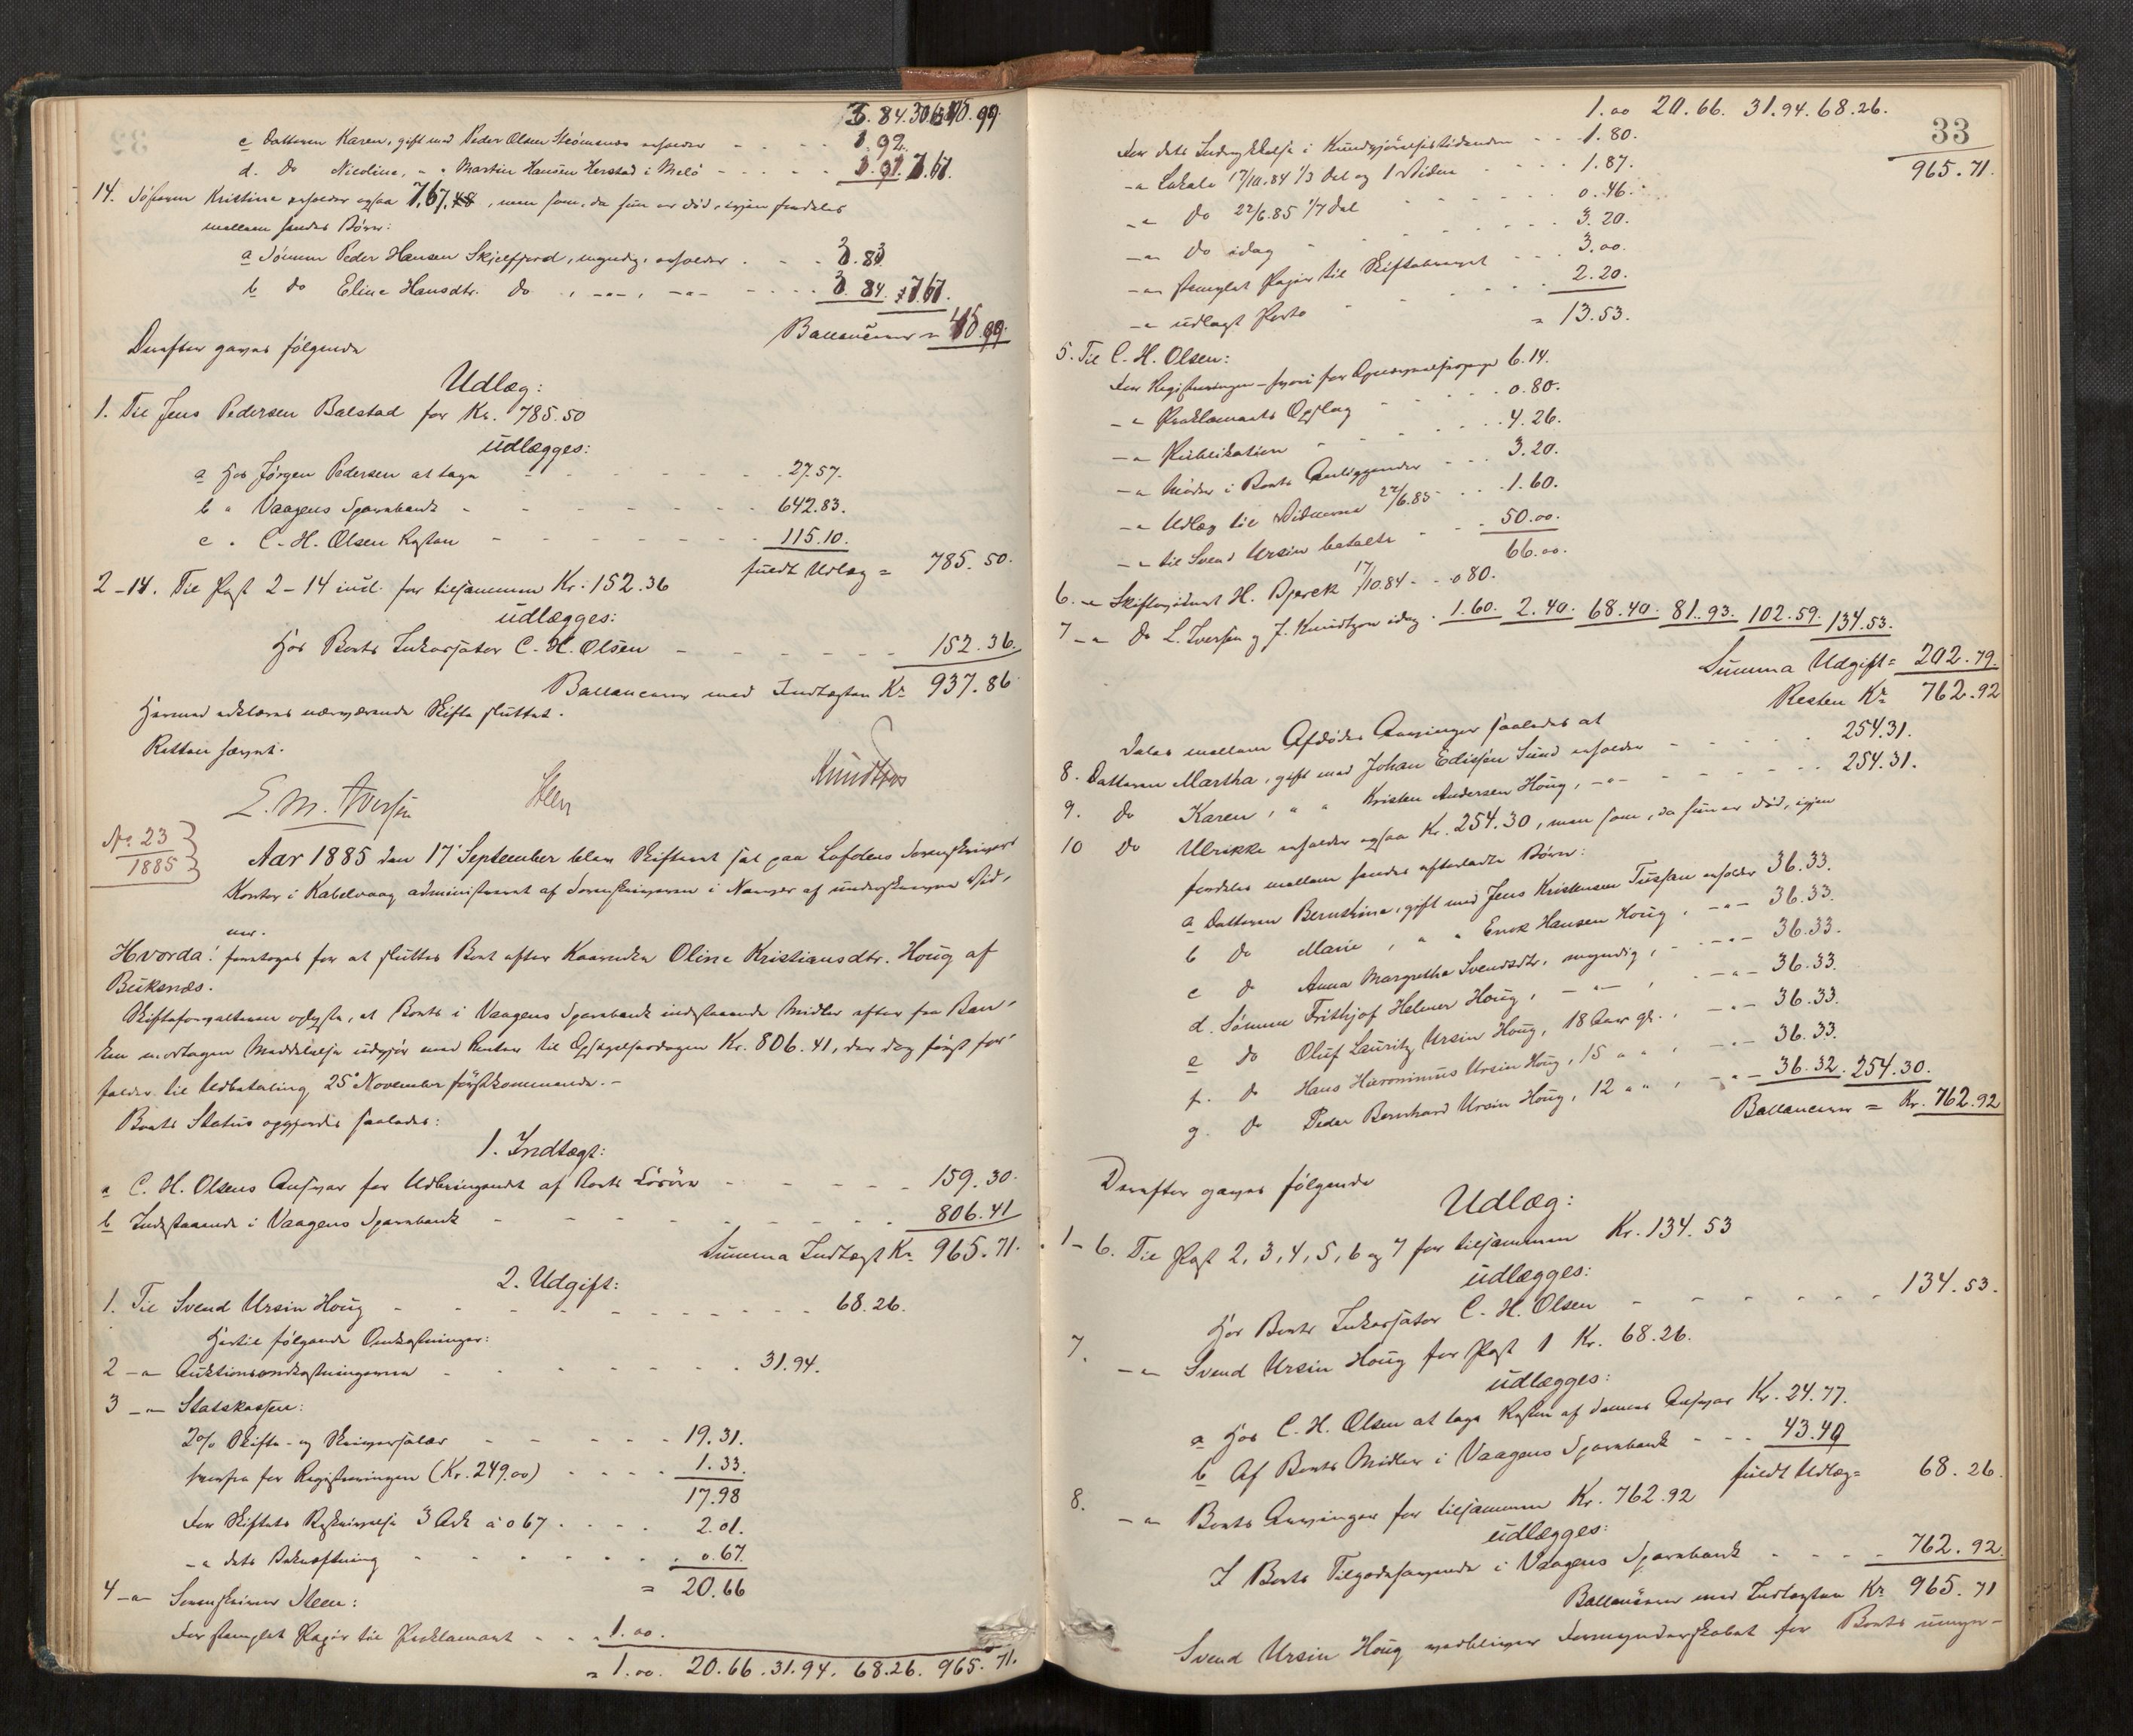 c Datteren Karen, gift med Peder Olsen Strömsnes erholder - - - - 3.92.
d. do Nicoline, " " Martin Hansen Herstad i Melö - - - - - 3.91. 7.61.
14. Söster Kristine erholder ogsaa 7,67, men som, da hun er död, igjen fordeles
mellem hendes Börn:
a Sönnen Peder Hansen Skjelfjord, myndig, erholder . - - 3.83
b do Eline Hansdtr. do , -"-, -"- - - - - 3.84. 7.67.
Ballancerer =
Derefter gaves følgende
Udlæg:
1. Til Jens Pedersen Balstad for Kr. 785.50
udlægges:
a Hos Jörgen Pedersen at tage - - - - - - 27.57.
b " Vaagens Sparebank - - - - - - - 642.83.
c . C. H. Olsen Resten - - - - - - - 115.10.
fuldt Udlæg = 785.50.
2-14. Til Post 2-14 incl. for tilsammen Kr. 152.36
udlægges:
Hos Boets Inkassator C. H. Olsen - - - - - - 152.36.
Ballancerer med Indtægten Kr. 937.86
Hermed erklæredes nærværende Skifte sluttet.
Retten hævet.
E. M. Iversen Steen Knudtzon
No. 23
1885
Aar 1885 den 17' September blev Skifteret sat paa Lofotens Sorenskriver
Kontor i Kabelvaag administreret af Sorenskriveren i Nærvær af underskrevne Vid-
ner.
Hvorda! foretoges for at sluttes Boet efter Kaarenke Oline Kristiansdtr. Houg af
Buksnæs.
Skifteforvalteren oplyste, at Boets i Vaagens Sparebank indestaaende Midler efter fra Ban-
ken modtagen Meddelelse udgjör med Renter til Opsigelsesdagen Kr. 806.41, der dog först for-
falder til Udbetaling 25' November förstkommende. -
Boets Status opgjordes saaledes:
1. Indtægt:
a C. H. Olsens Ansvar for Udbringendet af Boets Lösöre - - - - - 159.30.
b Indestaaende i Vaagens Sparebank - - - - - - - 806.41
Summa Indtægt Kr. 965.71.
2. Udgift:
1. Til Svend Ursin Houg - - - - - - - - 68.26.
Hertil følgende Omkostninger:
2 -"- Auktionsomkostningerne - - - - - - 31.94.
3 -"- Statskassen:
2% Skifte- og Skriversalær - - - - - 19.31.
herfra for Registreringen (Kr. 249.00) - - - - 1.33.
17.98
For Skiftets Beskrivelse 3 Ark à 0 67 . - - - 2.01.
-"- dets Bekræftning - - - - - - 0.67.
= 20.66
4 -"- Sorenskriver Steen:
For stemplet Papir til Proklamaet - - - 1.00.
= 1.00. 20.66. 31.94. 68.26. 965.71.
33
1.00 20.66. 31.94. 68.26.
965.71.
For dets Indrykkelse i Kundgjörelsestidenden - - 1.80.
-"- Lokale 17/10.84 1/3 Del og 1 Vidne - - - 1.87.
-"- do 22/6.85 1/7 Del - - - - 0.46.
-"- do idag - - - - - 3.20.
-"- stemplet Papir til Skiftebrevet - - - 3.00.
-"- udlagt Porto - - - - 2.20.
= 13.53.
5. Til C. H. Olsen:
For Registreringen 6.14.
-"- Proklamaets Opslag - - - 0.80.
-"- Publikation - - - - 4.26.
-"- Möder i Boets Anliggender - - - 3.20.
-"- Udlæg til Vidnerne 22/6.85 - - 1.60.
-"- til Svend Ursin betalte - - - 50.00.
66.00.
6. -"- Skiftevidnet H. Bjerck 17/10.84 - - 0 80.
7 -"- do L. Iversen og J. Knudtzon idag . 1.60. 2.40. 68.40. 81.93. 102.59. 134.53.
Summa Udgift = 202.79.
Resten Kr. 762.92
deles mellem Afdødes Arvinger saaledes at
8. Datteren Martha, gift med Johan Edissen Sund erholder - - - - - 254.31.
9. do Karen, " " Kristen Andersen Houg, -"- - - - - 254.31.
10 do Ulrikke erholder ogsaa Kr. 254.30, men som, da hun er död, igjen
fordeles mellem hendes efterladte Börn:
a Datteren Bernthine, gift med Jens Kristensen erholder 36.33.
b do Marie, " " Enok Hansen Houg, -"- 36.33.
c do Anna Margrethe Svendsdtr. myndig, -"- 36.33.
d. Sönnen Frithjof Helmer Houg, -"-, -"- 36.33.
e do Oluf Lauritz Ursin Houg, 18 Aar gl., -"- 36.33.
f. do Hans Hieronimus Ursin Houg, 15 " ", -"- 36.33.
g. do Peder Bernhard Ursin Houg, 12 " ", -"- 36.32. 254.30.
Ballancerer = Kr. 762.92
Derefter gaves følgende
Udlæg:
1-6. Til Post 2, 3, 4, 5, 6 og 7 for tilsammen Kr. 134.53
udlægges:
Hos Boets Inkassator C. H. Olsen - - - - - - 134.53.
7. -"- Svend Ursin Houg for Post 1 Kr. 68.26.
udlægges:
a Hos C. H. Olsen at tage Resten af dennes Ansvar Kr. 24.77.
b Af Boets Midler i Vaagens Sparebank - - - 43.49
fuldt Udlæg = 68.26.
8. -"- Boets Arvinger for tilsammen Kr. 762.92
udlægges:
I Boets Tilgodehavende i Vaagens Sparebank - - - - 762.92.
Ballancerer med Indtægten Kr. 965.71
Svend Ursin Houg vedbliver Formynderskabet for Boets umyn-